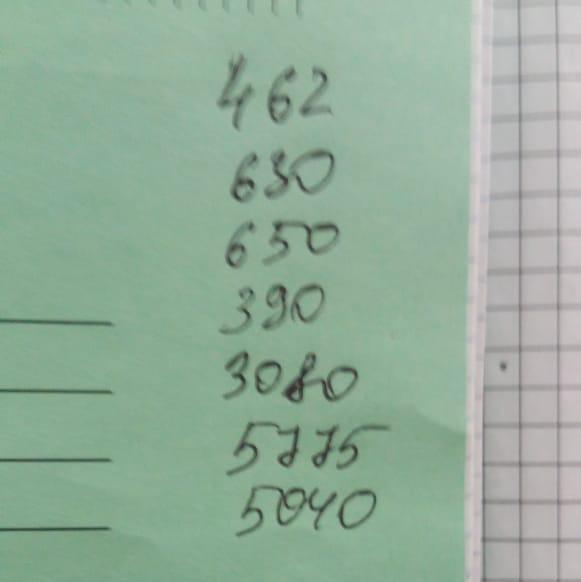 462
630
650
390
3080
5775
5040